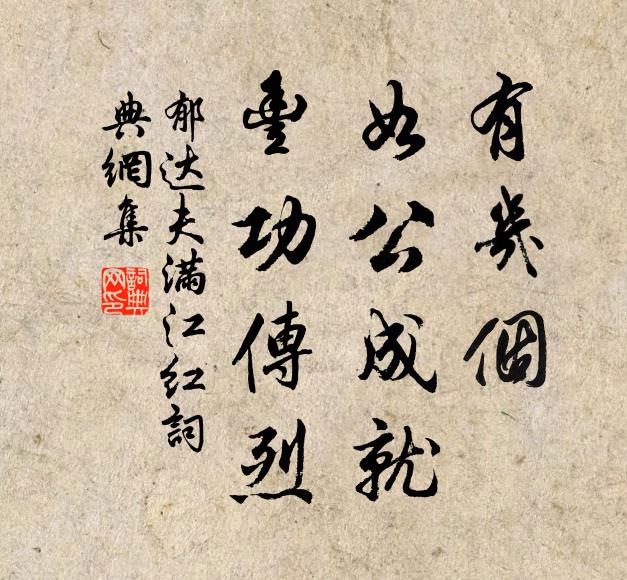 有幾個
如公成就
豐功傳烈
郁达夫满江红詞
典網集
詞典
网印